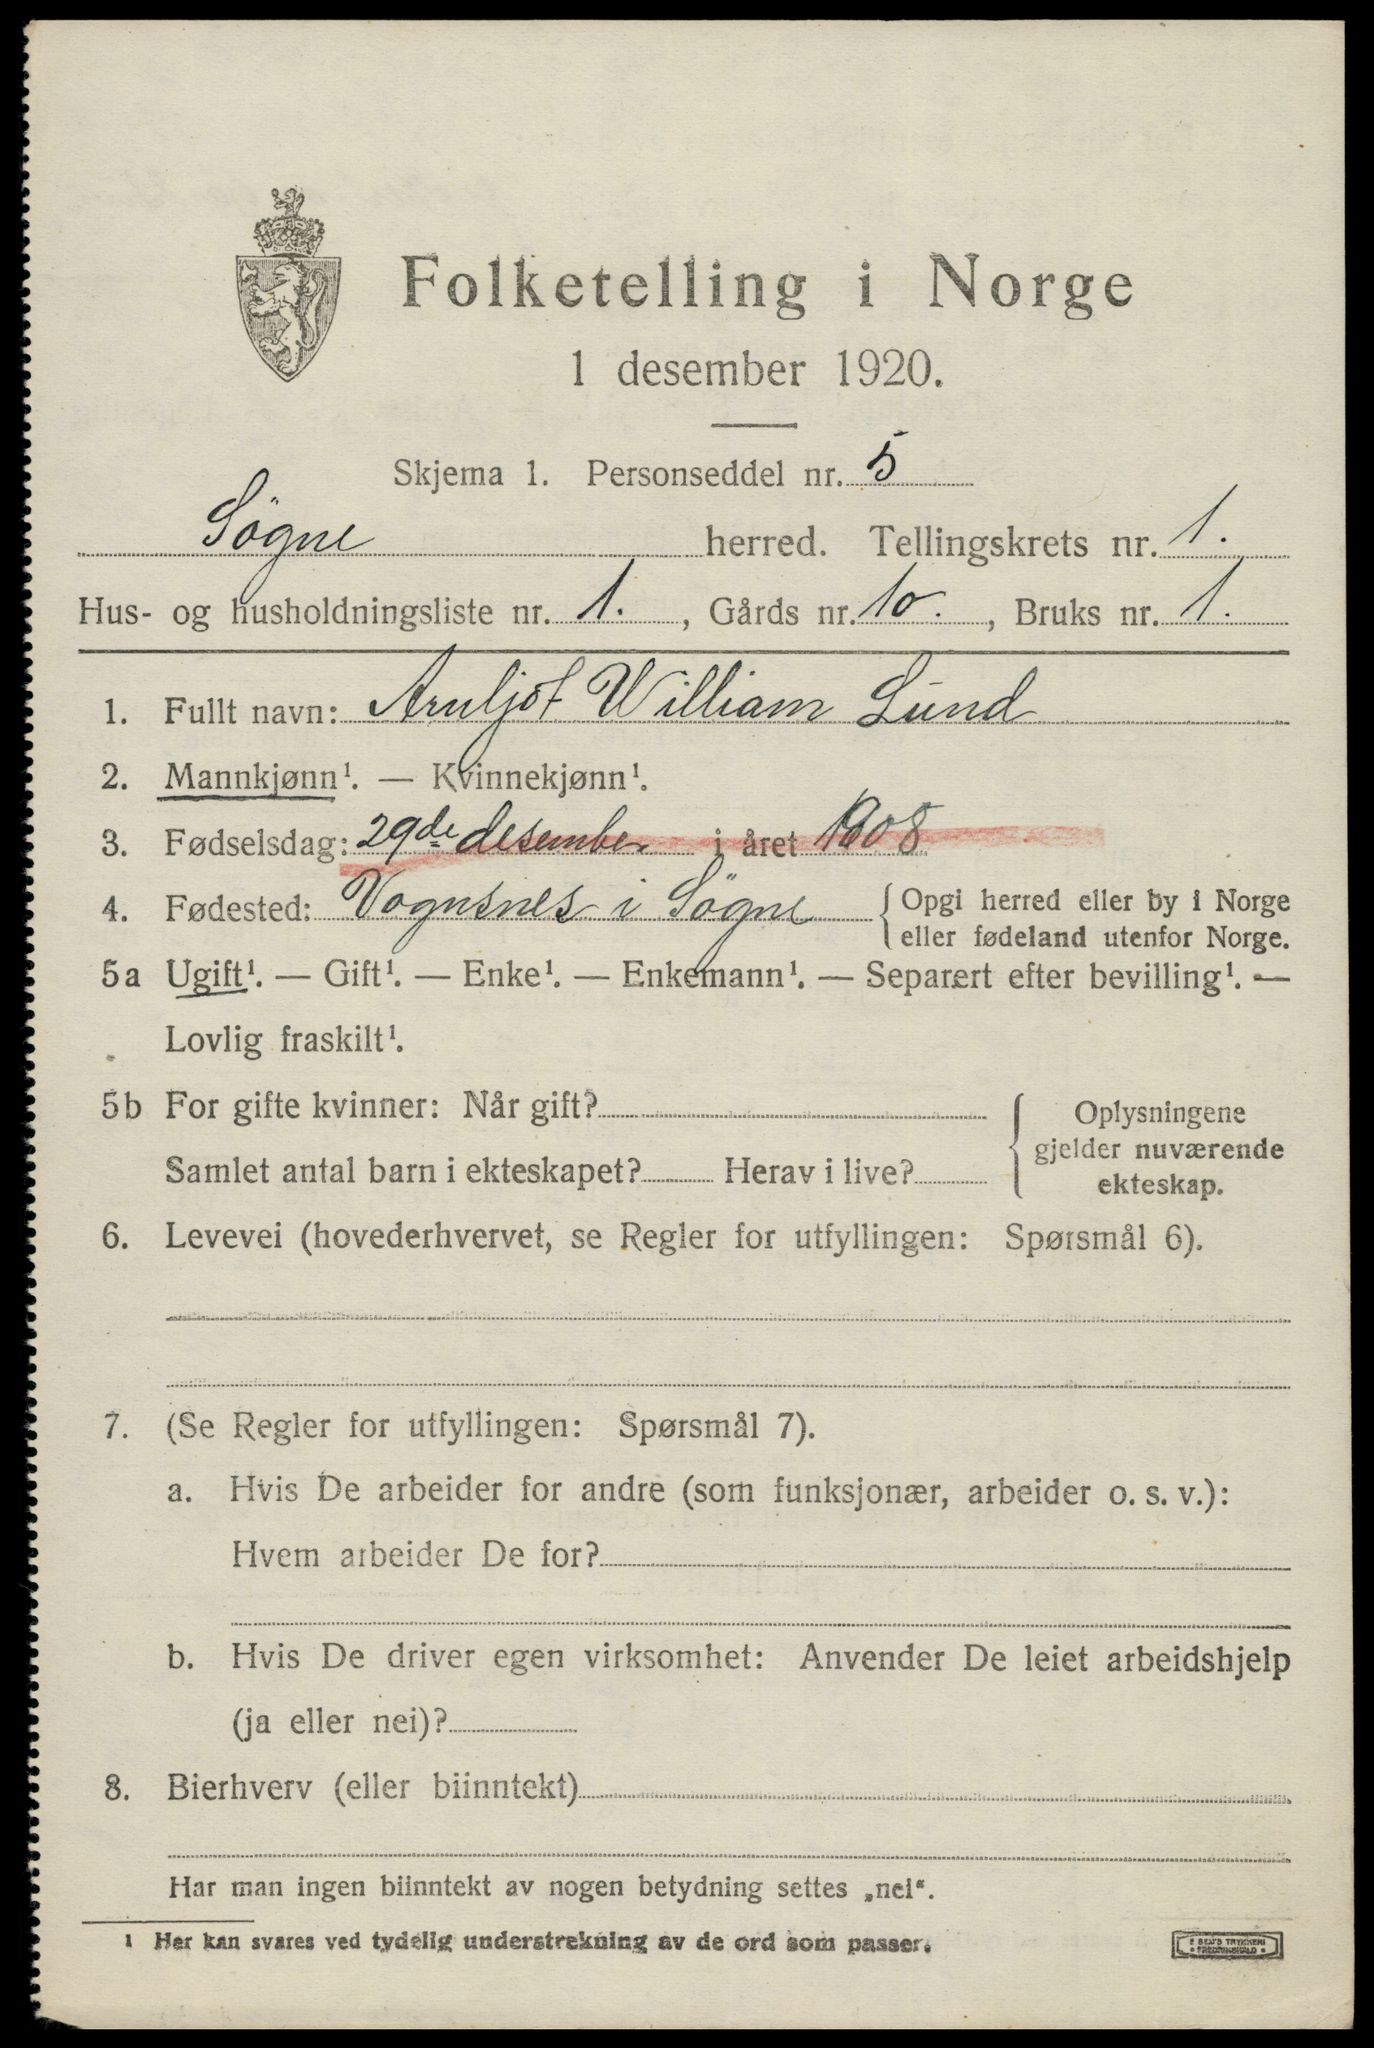 Folketelling i Norge
1 desember 1920.
Skjema 1. Personseddel nr. 5
Søgne herred. Tellingskrets nr. 1.
Hus- og husholdningsliste nr. 1., Gårds nr. 10., Bruks nr. 1.
1. Fullt navn: Arnljot William Lund
2. Mannkjønn¹. — Kvinnekjønn¹.
3. Fødselsdag: 29de desember i året 1908
4. Fødested: Vognsnes i Søgne {Opgi herred eller by i Norge
eller fødeland utenfor Norge.
5a Ugift¹. — Gift¹. — Enke¹. — Enkemann¹. — Separert efter bevilling¹. —
Lovlig fraskilt¹.
5b For gifte kvinner: Når gift? { Oplysningene
gjelder nuværende
Samlet antal barn i ekteskapet? Herav i live? ekteskap.
6. Levevei (hovederhvervet, se Regler for utfyllingen: Spørsmål 6).
7. (Se Regler for utfyllingen: Spørsmål 7).
a. Hvis De arbeider for andre (som funksjonær, arbeider o. s. v.):
Hvem arbeider De for?
b. Hvis De driver egen virksomhet: Anvender De leiet arbeidshjelp
(ja eller nei)?
8. Bierhverv (eller biinntekt)
Har man ingen biinntekt av nogen betydning settes „nei“.
¹ Her kan svares ved tydelig understrekning av de ord som passer.
TRYKKERI
FREDRIKSHALD